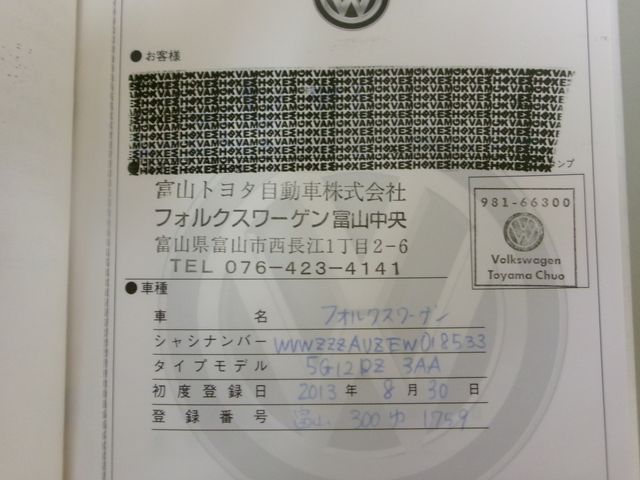 ●お客様
富山トヨタ自動車株式会社
フォルクスワーゲン富山中央
富山県富山市西長江1丁目2-6
TEL 076-423-4141
981-66300
Volkswagen
Toyama Chuo
●車種
車名 フォルクスワーゲン
シャシナンバー WVWZZZAUZEW018533
タイプモデル 5G12DZ 3AA
初度登録日 2013年8月30日
登録番号 富山 300 ゆ 1759